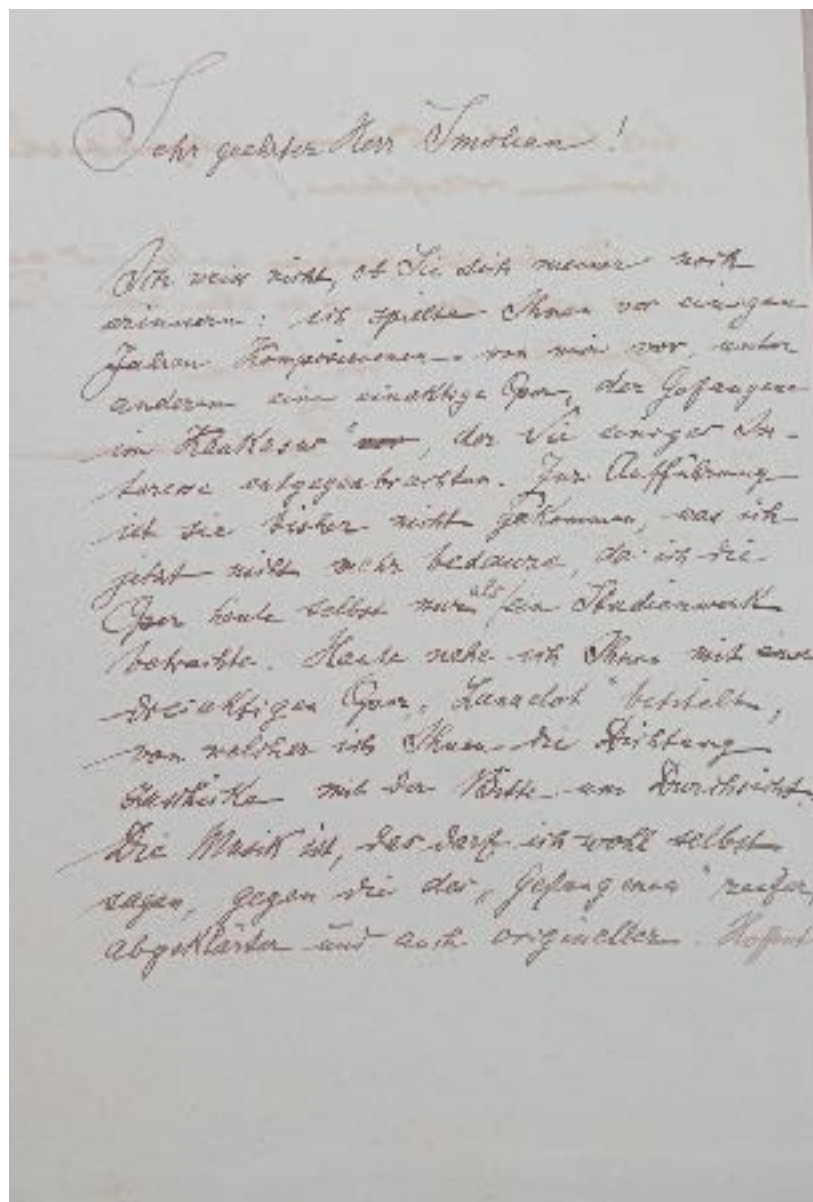 Sehr geehrter Herr Smolian!
Ich weiss nicht, ob Sie sich meiner noch
erinnern: ich spielte Ihnen vor einigen
Jahren Kompositionen von mir vor, unter
anderem eine einaktige Oper, „der Gefangene
im Kaukasus“ vor, der Sie einiges In-
teresse entgegenbrachten. Zur Aufführung
ist sie bisher nicht gekommen, was ich
jetzt nicht mehr bedaure, da ich die
Oper heute selbst nur als ein Studienwerk
betrachte. Heute nahe ich Ihnen mit einer
dreiaktigen Oper, „Lanzelot“ betitelt,
von welcher ich Ihnen die Dichtung
schicke mit der Bitte um Durchsicht.
Die Musik ist, das darf ich wohl selbst
sagen, gegen die des „Gefangenen“ reifer,
abgeklärter und auch origineller. Hoffent